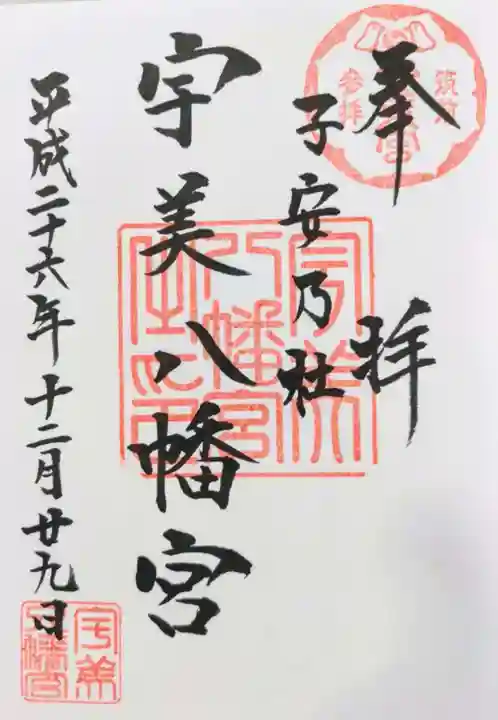 奉拝
子安乃社
宇美八幡宮
平成二十六年十二月廿九日
筑前
参拝
宇美
八幡宮
之印
宇美
八幡宮